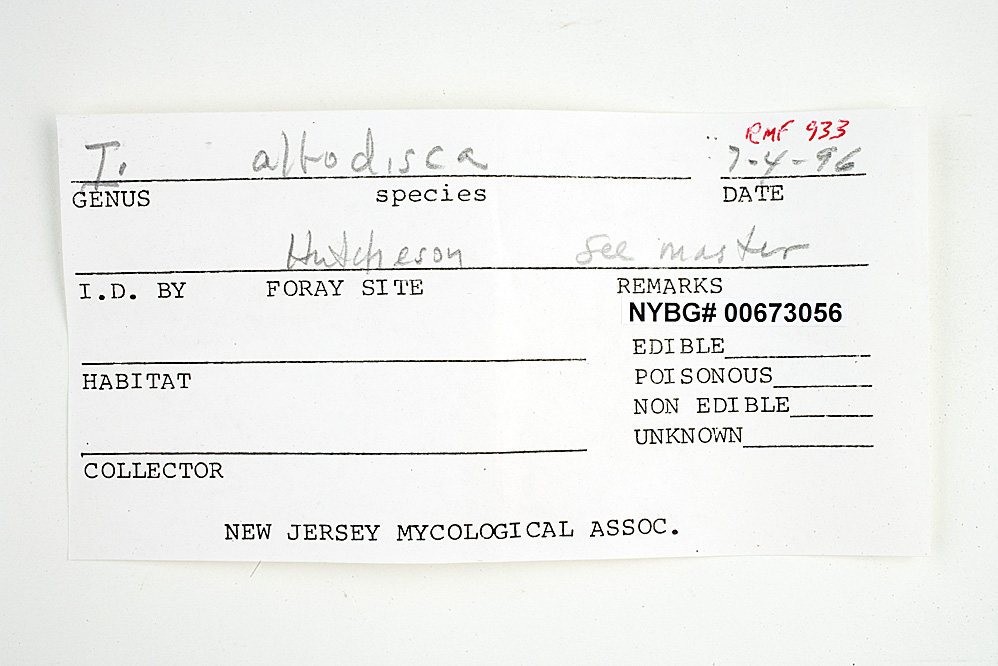 RMF 933
I. albodisca 7-4-96
GENUS species DATE
Hutcheson See master
I.D. BY FORAY SITE REMARKS
NYBG# 00673056
EDIBLE
POISONOUS
HABITAT
NON EDIBLE
UNKNOWN
COLLECTOR
NEW JERSEY MYCOLOGICAL ASSOC.